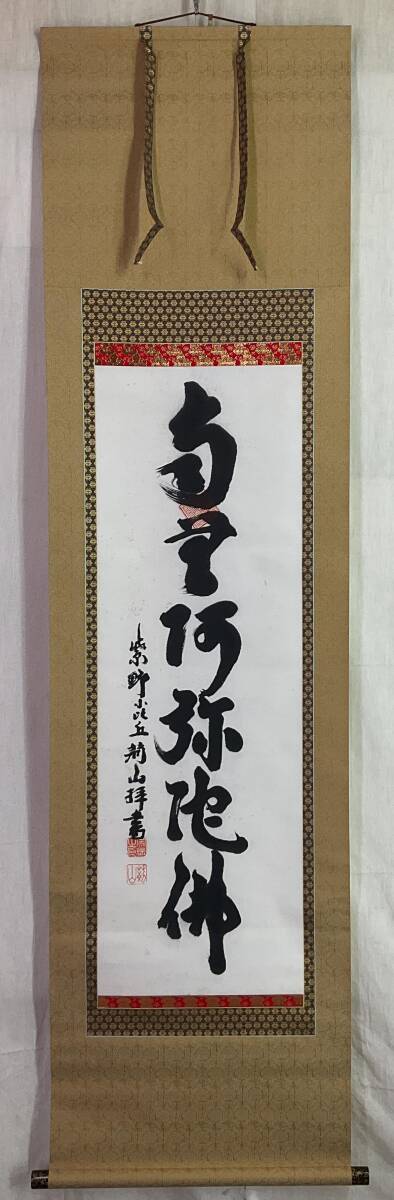 南無阿弥陀佛
紫野小比丘菊山拝書